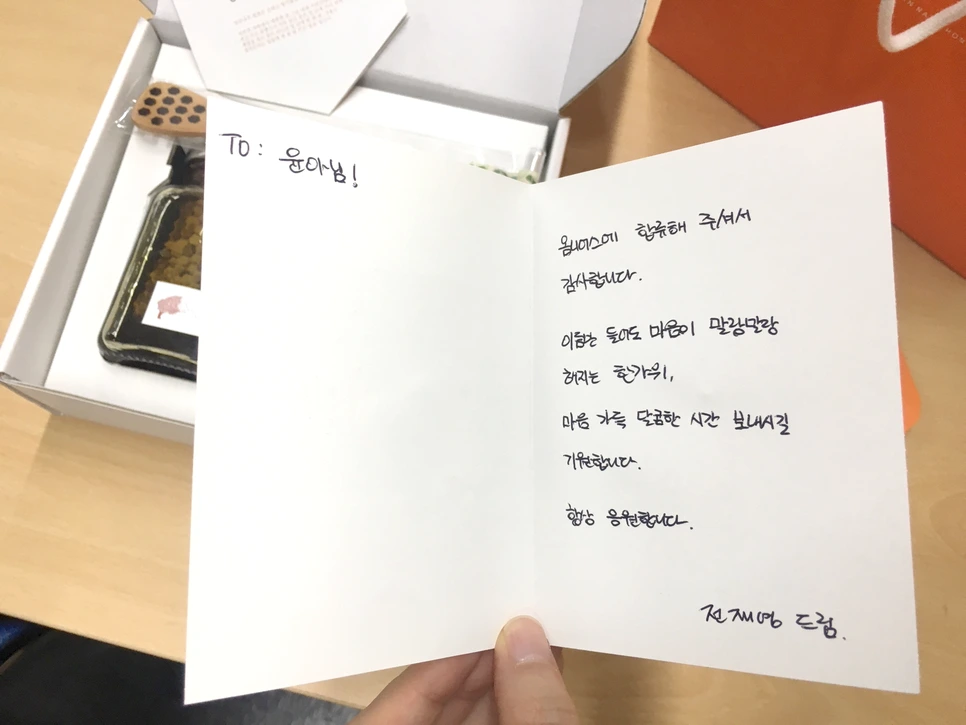 TO: 윤아님!
옴니어스에 합류해 주셔서
감사합니다.
이름만 들어도 마음이 말랑말랑
해지는 한가위,
마음 가득 달콤한 시간 보내시길
기원합니다.
항상 응원합니다.
전재영 드림.